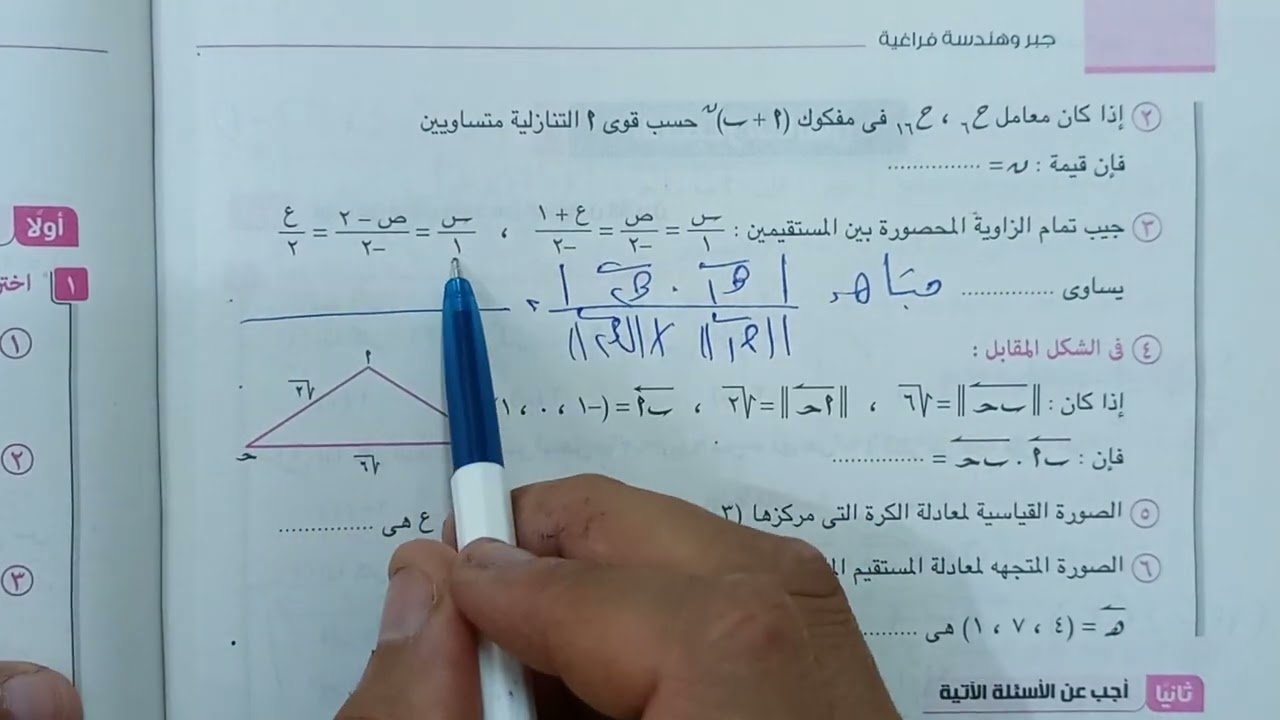 جبر وهندسة فراغية
٢ إذا كان معامل ح٦ ، ح١٦ فى مفكوك (٩ + ب)ⁿ حسب قوى ٩ التنازلية متساويين
فإن قيمة : ن = ..............
٣ جيب تمام الزاوية المحصورة بين المستقيمين : س/١ = ص/-٢ = ع + ١/-٢ ، س/١ = ص - ٢/-٢ = ع/٢
يساوى ..............
حتا هـ = | هـ١ . هـ٢ | / ||هـ١|| × ||هـ٢||
٤ فى الشكل المقابل :
إذا كان : ||ب حـ|| = √٦ ، ||٩ حـ|| = √٢ ، ب ٩ = (-١ ، ٠ ، ١
فإن : ب ٩ . ب حـ = ..............
٩
√٢
حـ
√٦
٥ الصورة القياسية لمعادلة الكرة التى مركزها (٣
ع هى ..............
٦ الصورة المتجهه لمعادلة المستقيم
هـ = (٤ ، ٧ ، ١) هى ..........
ثانيًا أجب عن الأسئلة الآتية
أولًا
١ اختر
١
٢
٣